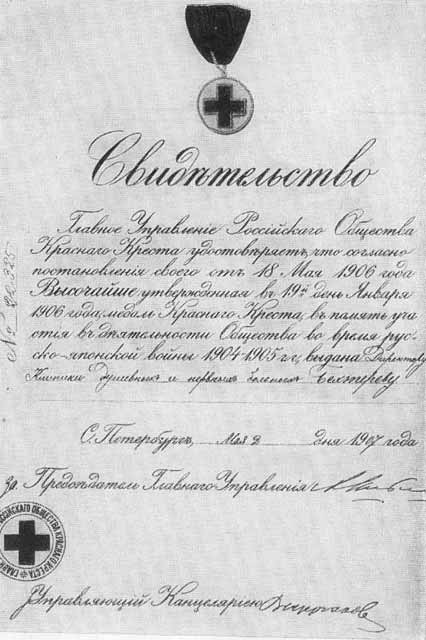 Свидѣтельство
Главное Управленіе Россійскаго Общества
Краснаго Креста удостовѣряетъ, что согласно
постановленія своего отъ 18 Мая 1906 года
Высочайше утвержденная въ 19й день Января
1906 года, медаль Краснаго Креста, въ память уча
стія въ дѣятельности Общества во время рус-
ско-японской войны 1904-1905 г.г., выдана Директору
Клиники душевныхъ и нервныхъ болѣзней Бехтереву
С. Петербургъ, Мая 2 дня 1907 года
За Предсѣдатель Главнаго Управленія
Управляющій Канцеляріею
№
ОБЩЕСТВА КРАСНАГО КРЕСТА